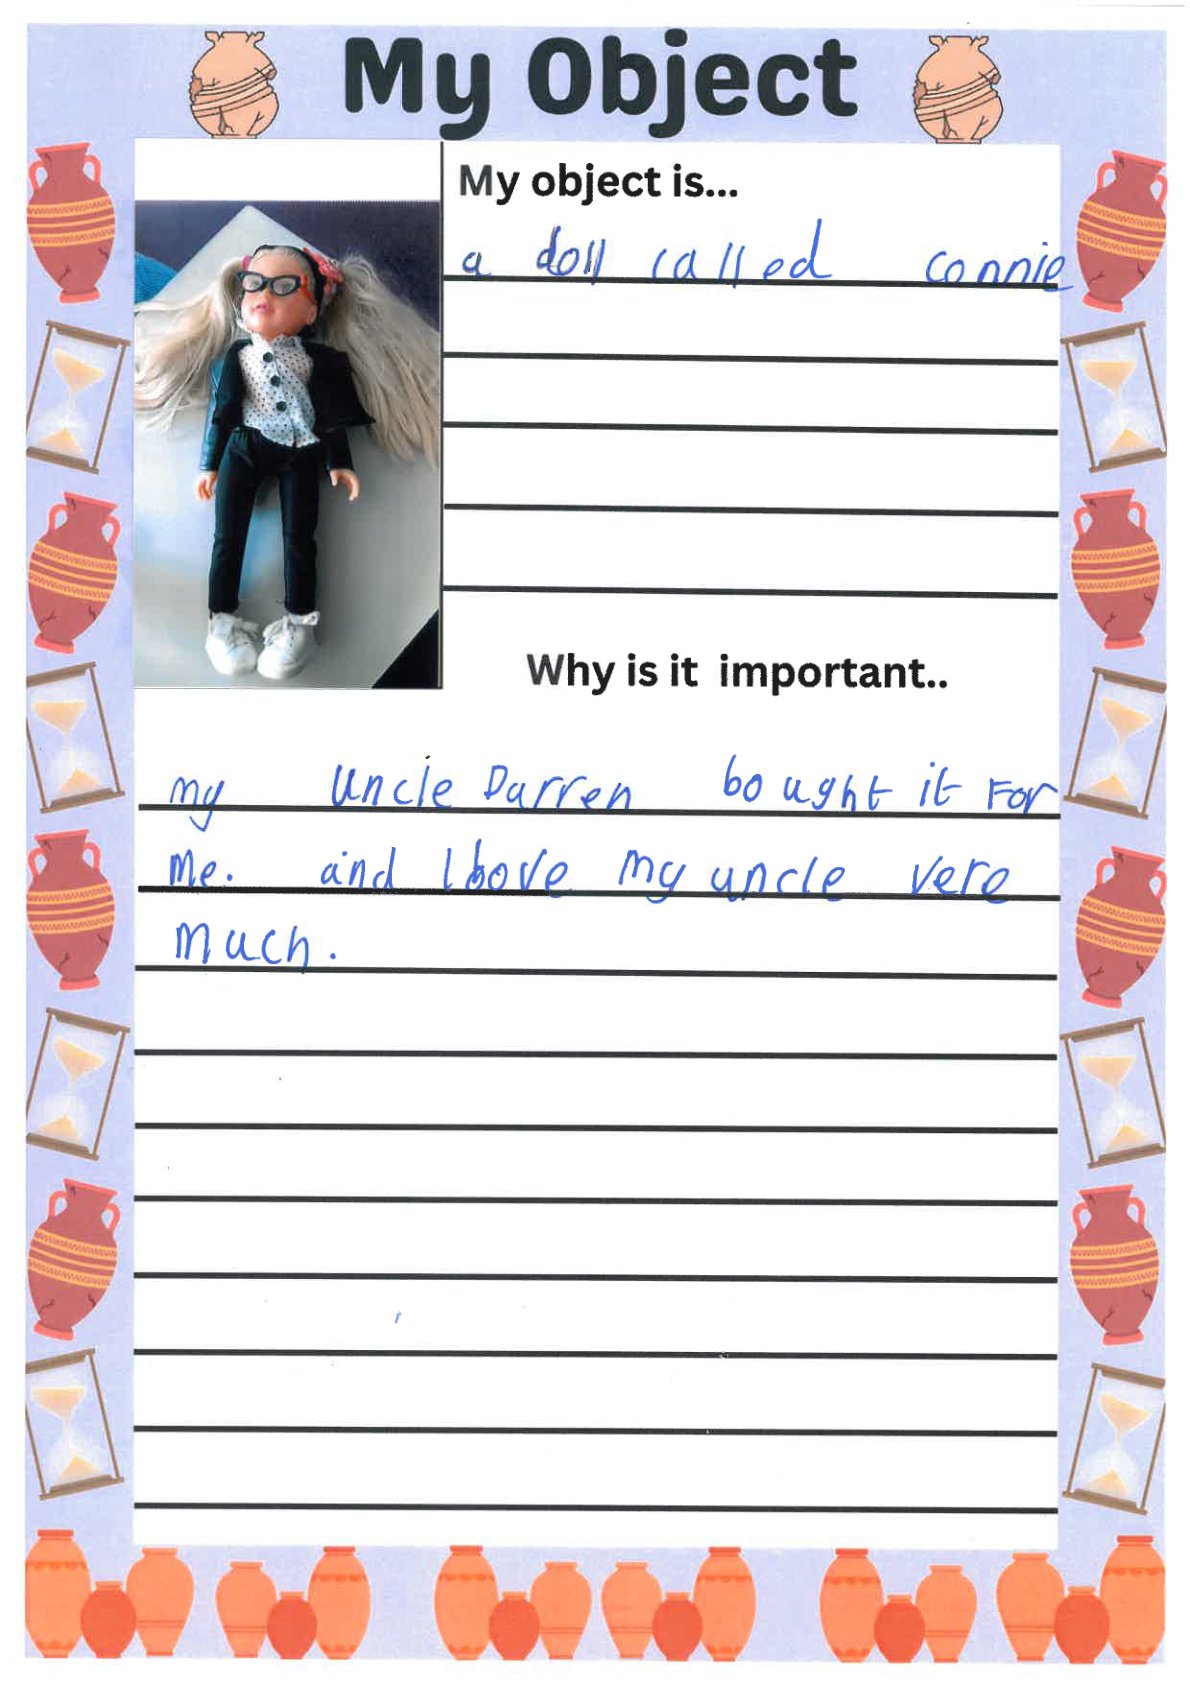 My Object
My object is...
a doll called connie
Why is it important..
my Uncle Darren bought it For
Me. and I love my uncle vere
Much.